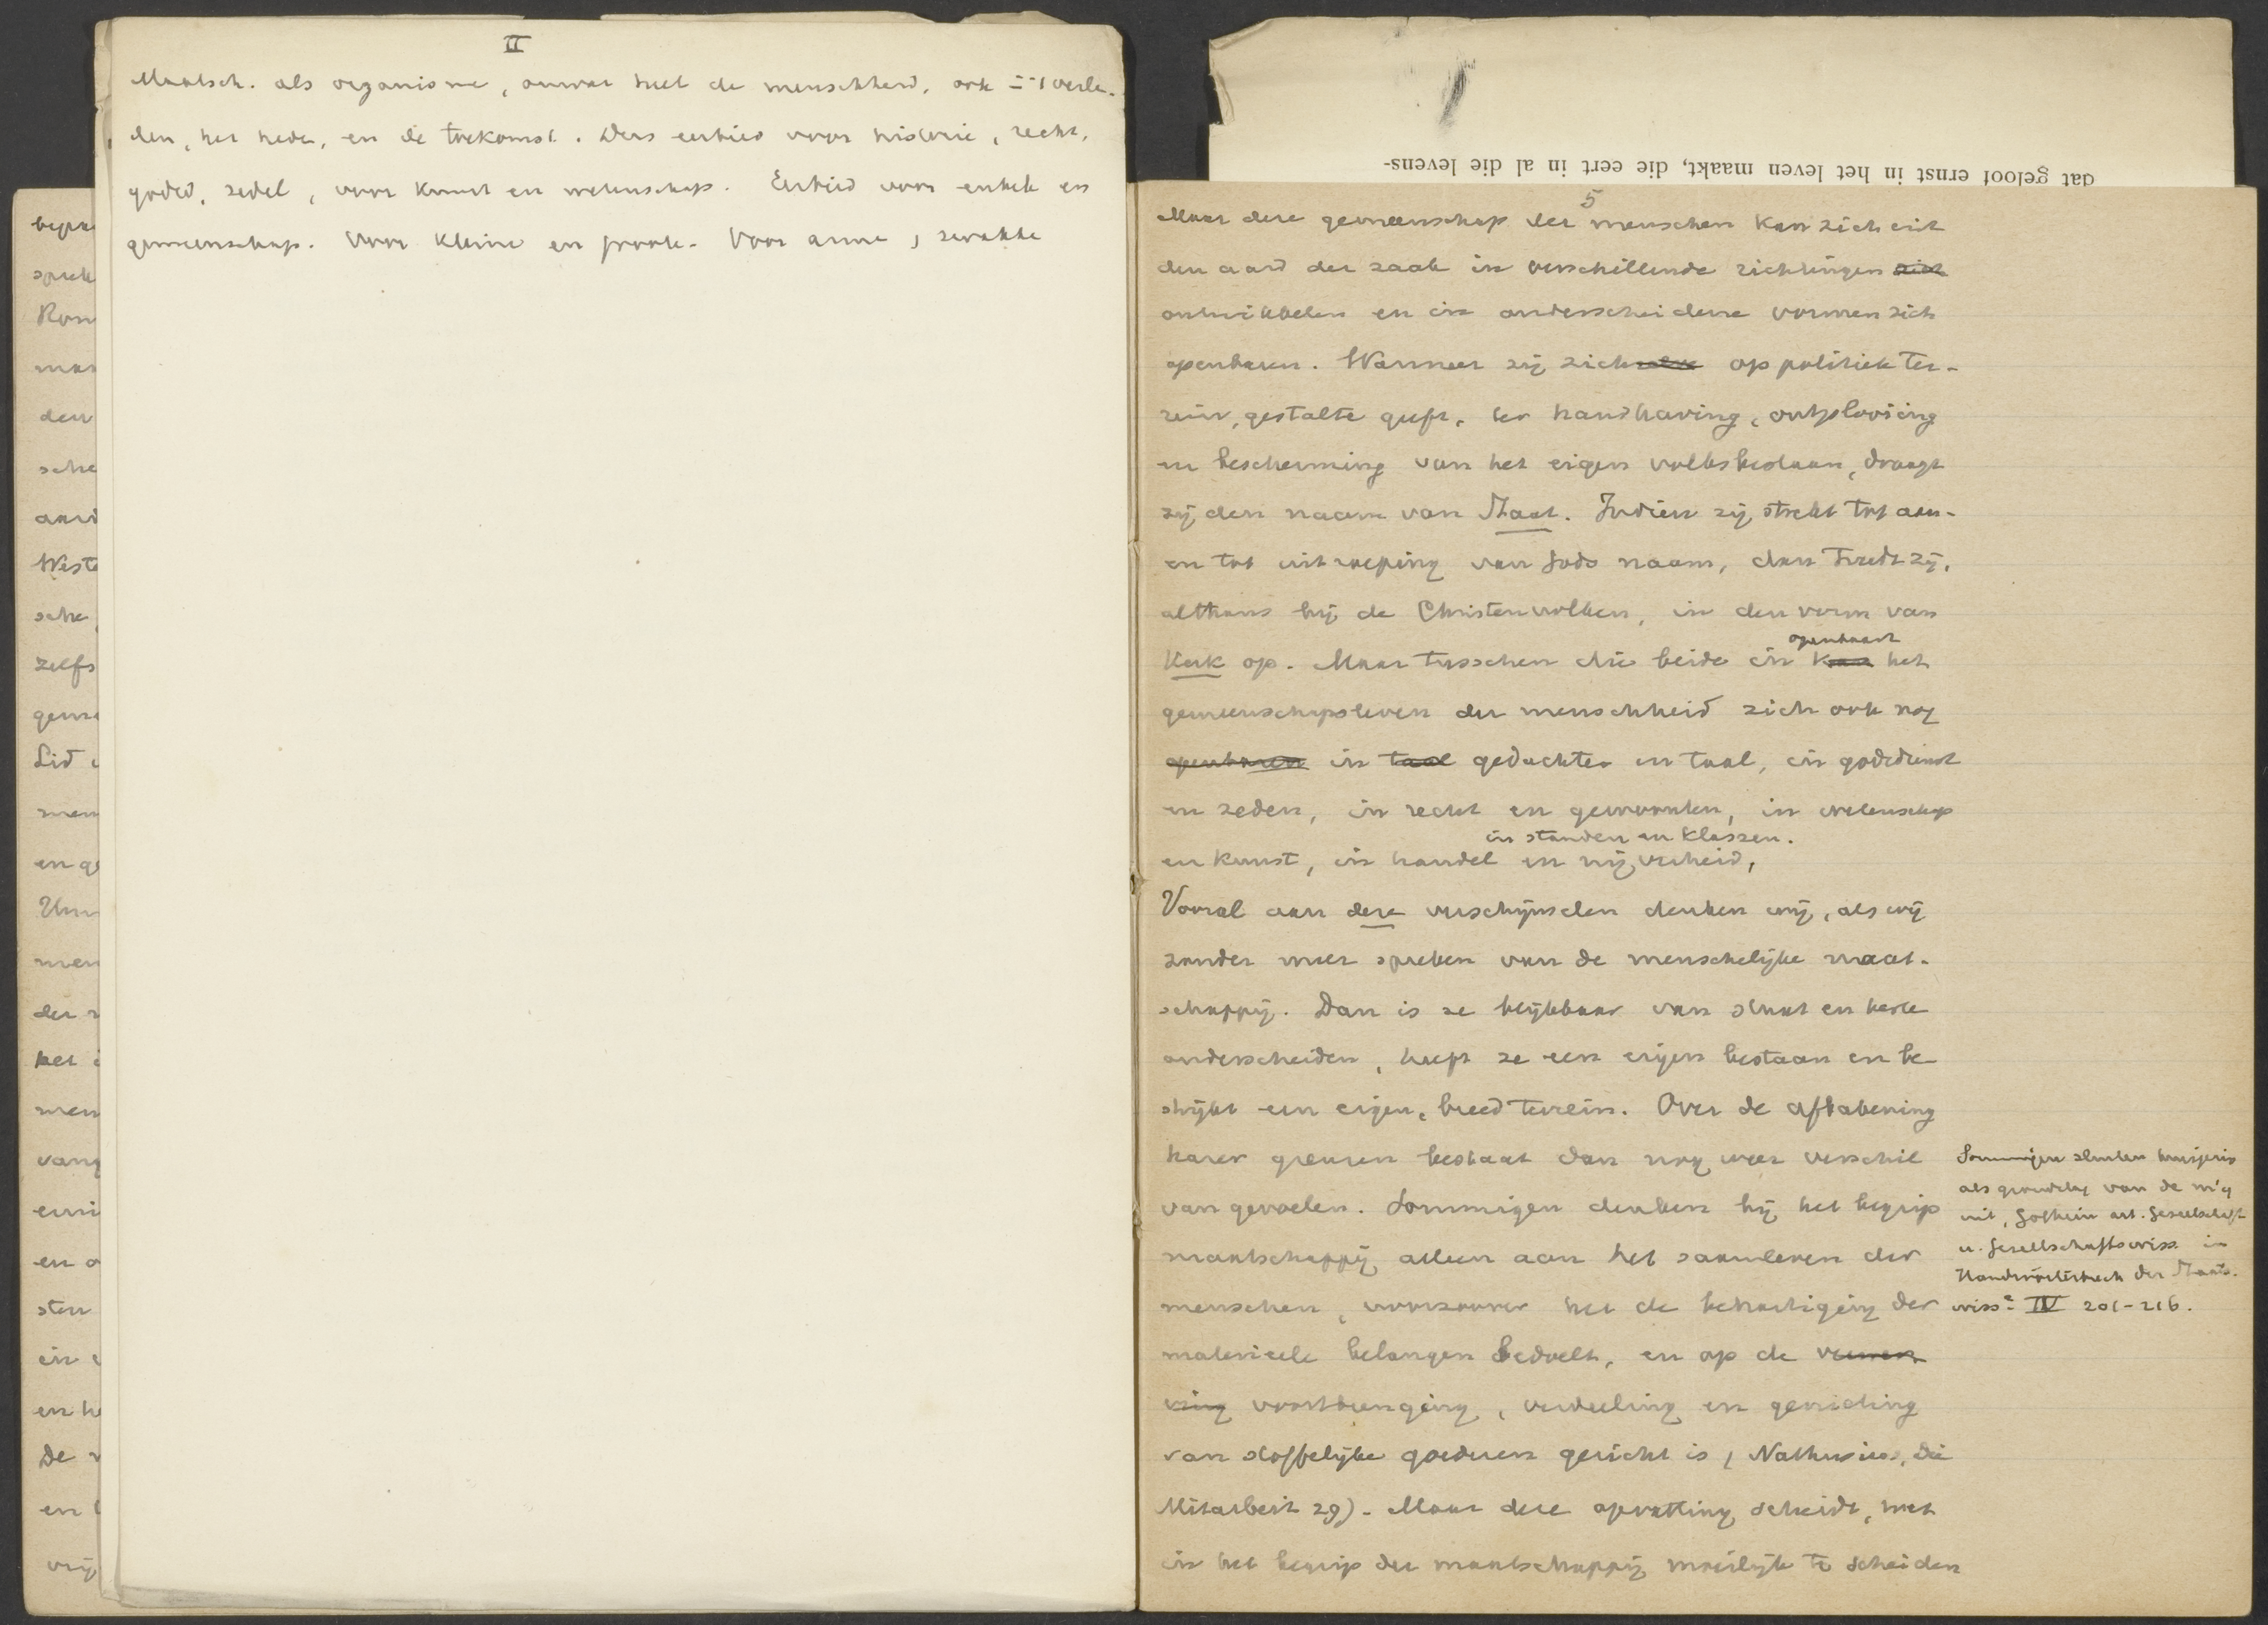 II
Maatsch. als organisme, omvat heel de menschheid, ook in 't verle-
den, het heden, en de toekomst. Dus eerbied voor historie, recht,
godsd, zedel, voor kunst en wetenschap. Eerbied voor enkele en
gemeenschap. Voor kleine en groote. Voor arme, zwakke
dat geloof ernst in het leven maakt, die eert in al die levens-
5
Maar deze gemeenschap der menschen kan zich uit
den aard der zaak in verschillende richtingen zich
ontwikkelen en in onderscheidene vormen zich
openbaren. Wanneer zij zich op politiek ter-
rein, gestalte geeft, ter handhaving, ontplooiing
en bescherming van het eigen volksbestaan, draagt
zij den naam van Staat. Indien zij strekt tot aan-
en tot uitroeping van Gods naam, dan treedt zij,
althans bij de Christenvolken, in den vorm van
openbaart
Kerk op. Maar tusschen die beide in kan het
gemeenschapsleven der menschheid zich ook nog
openbaren in taal gedachten en taal, in godsdienst
en zeden, in recht en gewoonten, in wetenschap
in standen en klassen.
en kunst, in handel en nijverheid,
Vooral aan deze verschijnselen denken wij, als wij
zonder meer spreken van de menschelijke maat-
schappij. Dan is ze blijkbaar van staat en kerk
onderscheiden, heeft ze een eigen bestaan en be-
strijkt een eigen, breed terrein. Over de afbakening
harer grenzen bestaat dan nog weer verschil
van gevoelen. Sommigen denken bij het begrip
maatschappij alleen aan het saamleven der
menschen, voorzoover het de behartiging der
materieele belangen bedoelt, en op de
ving voortbrenging, verdeeling en genieting
van stoffelijke goederen gericht is (Nathusius, Die
Mitarbeit 29). Maar deze opvatting scheidt, wat
in het begrip der maatschappij moeilijk te scheiden
Sommigen sluiten huisgezin
als grondslag van de m'ij
uit, Gothein art. Gesellschaft
u. Gesellschaftswiss. in
Handwörterbuch der Staats-
wiss² IV 201-216.
bepaa
sprek
Rom
maa
den
sche
aard
Weste
sche
zelfs
geme
Lid
men
en ge
Um
men
der
het
men
vang
eeni
en
sten
in
en he
De
en
vrij